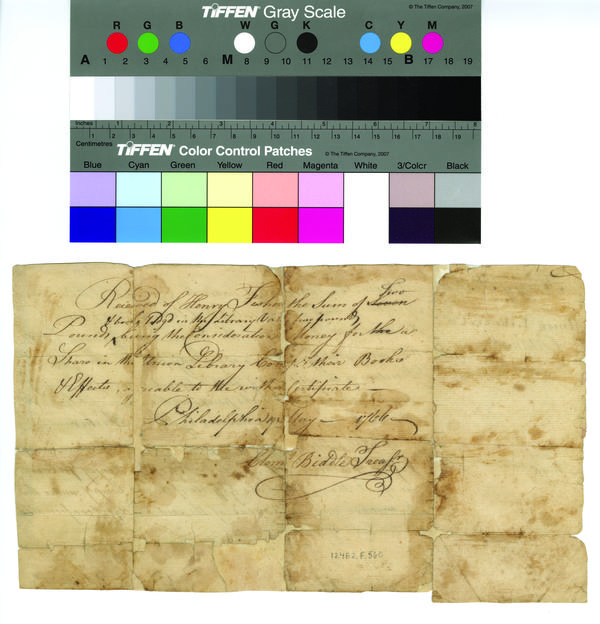 TIFFEN Gray Scale
© The Tiffen Company, 2007
R G B W G K C Y M
A 1 2 3 4 5 6 M 8 9 10 11 12 13 14 15 B 17 18 19
Inches 1 2 3 4 5 6 7 8
Centimetres 1 2 3 4 5 6 7 8 9 10 11 12 13 14 15 16 17 18 19
TIFFEN Color Control Patches
© The Tiffen Company, 2007
Blue Cyan Green Yellow Red Magenta White 3/Color Black
Received of Henry the Sum of
Two
in the Library
Pounds, being the Consideration Money for the a
Share in the Union Library Comp & their Books
& Effects, agreeable to the with Certificate
Philadelphia 1766
Biddle Treasr
12462.F.560